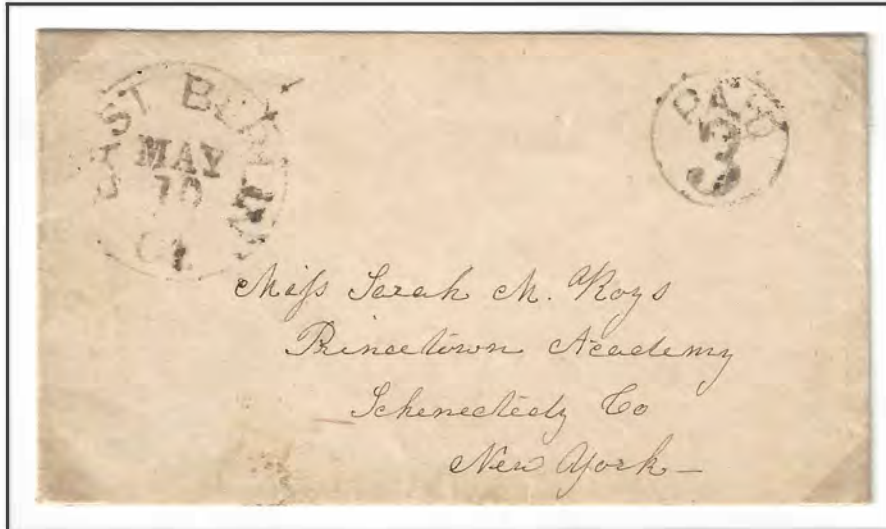 EAST BERLIN
MAY
10
Ct.
PAID
3
Miss Sarah M. Roys
Princetown Academy
Schenectedy Co
New York —